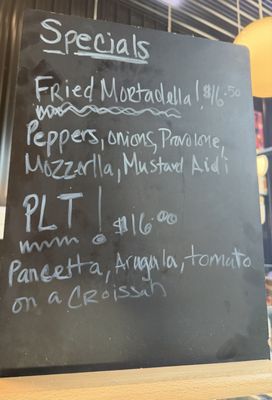 Specials
Fried Mortadella! $16.50
Peppers, onions, Provolone,
Mozzarlla, Mustard Aidi
PLT! $16.00
Pancetta, Arugula, tomato
on a Croissan